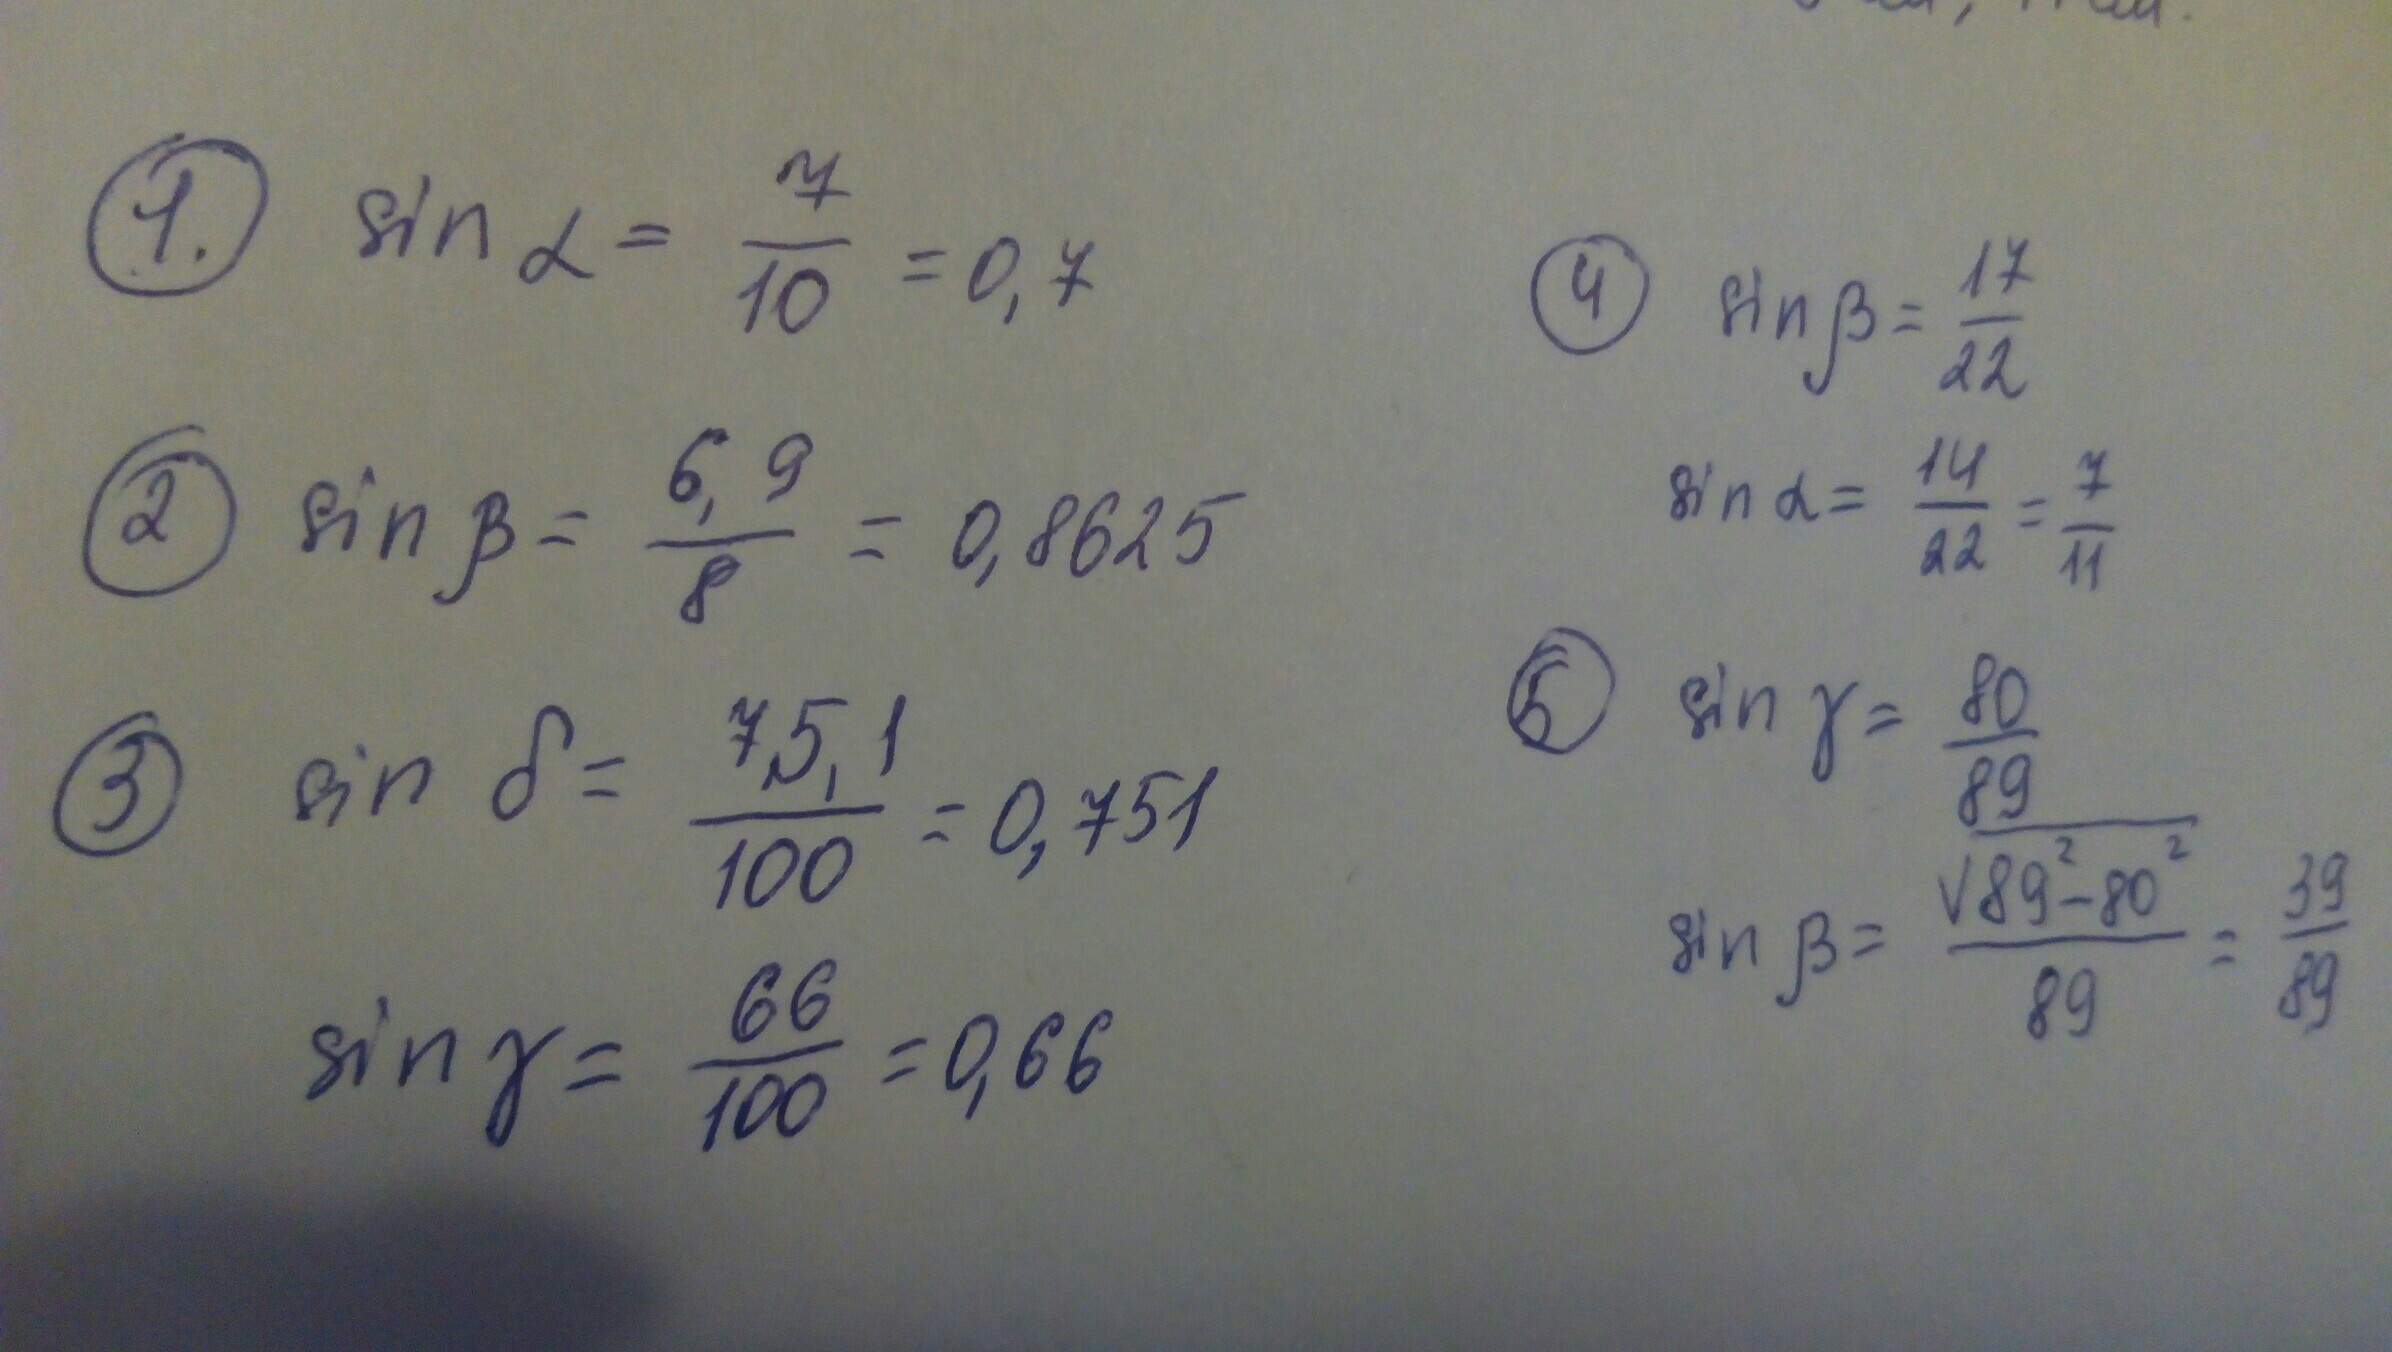 1. sin α = 7/10 = 0,7
2 sin β = 6,9/8 = 0,8625
3 sin δ = 75,1/100 = 0,751
sin γ = 66/100 = 0,66
4 sin β = 17/22
sin α = 14/22 = 7/11
5 sin γ = 80/89
sin β = √(89² - 80²)/89 = 39/89